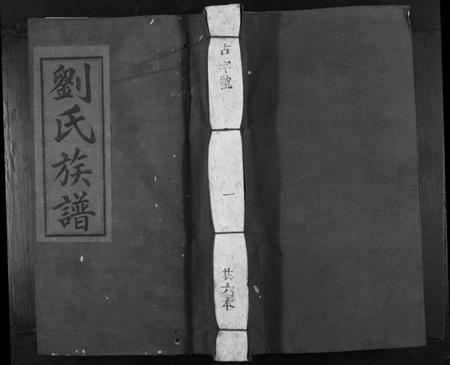 劉氏族譜
占字號
一
共六本